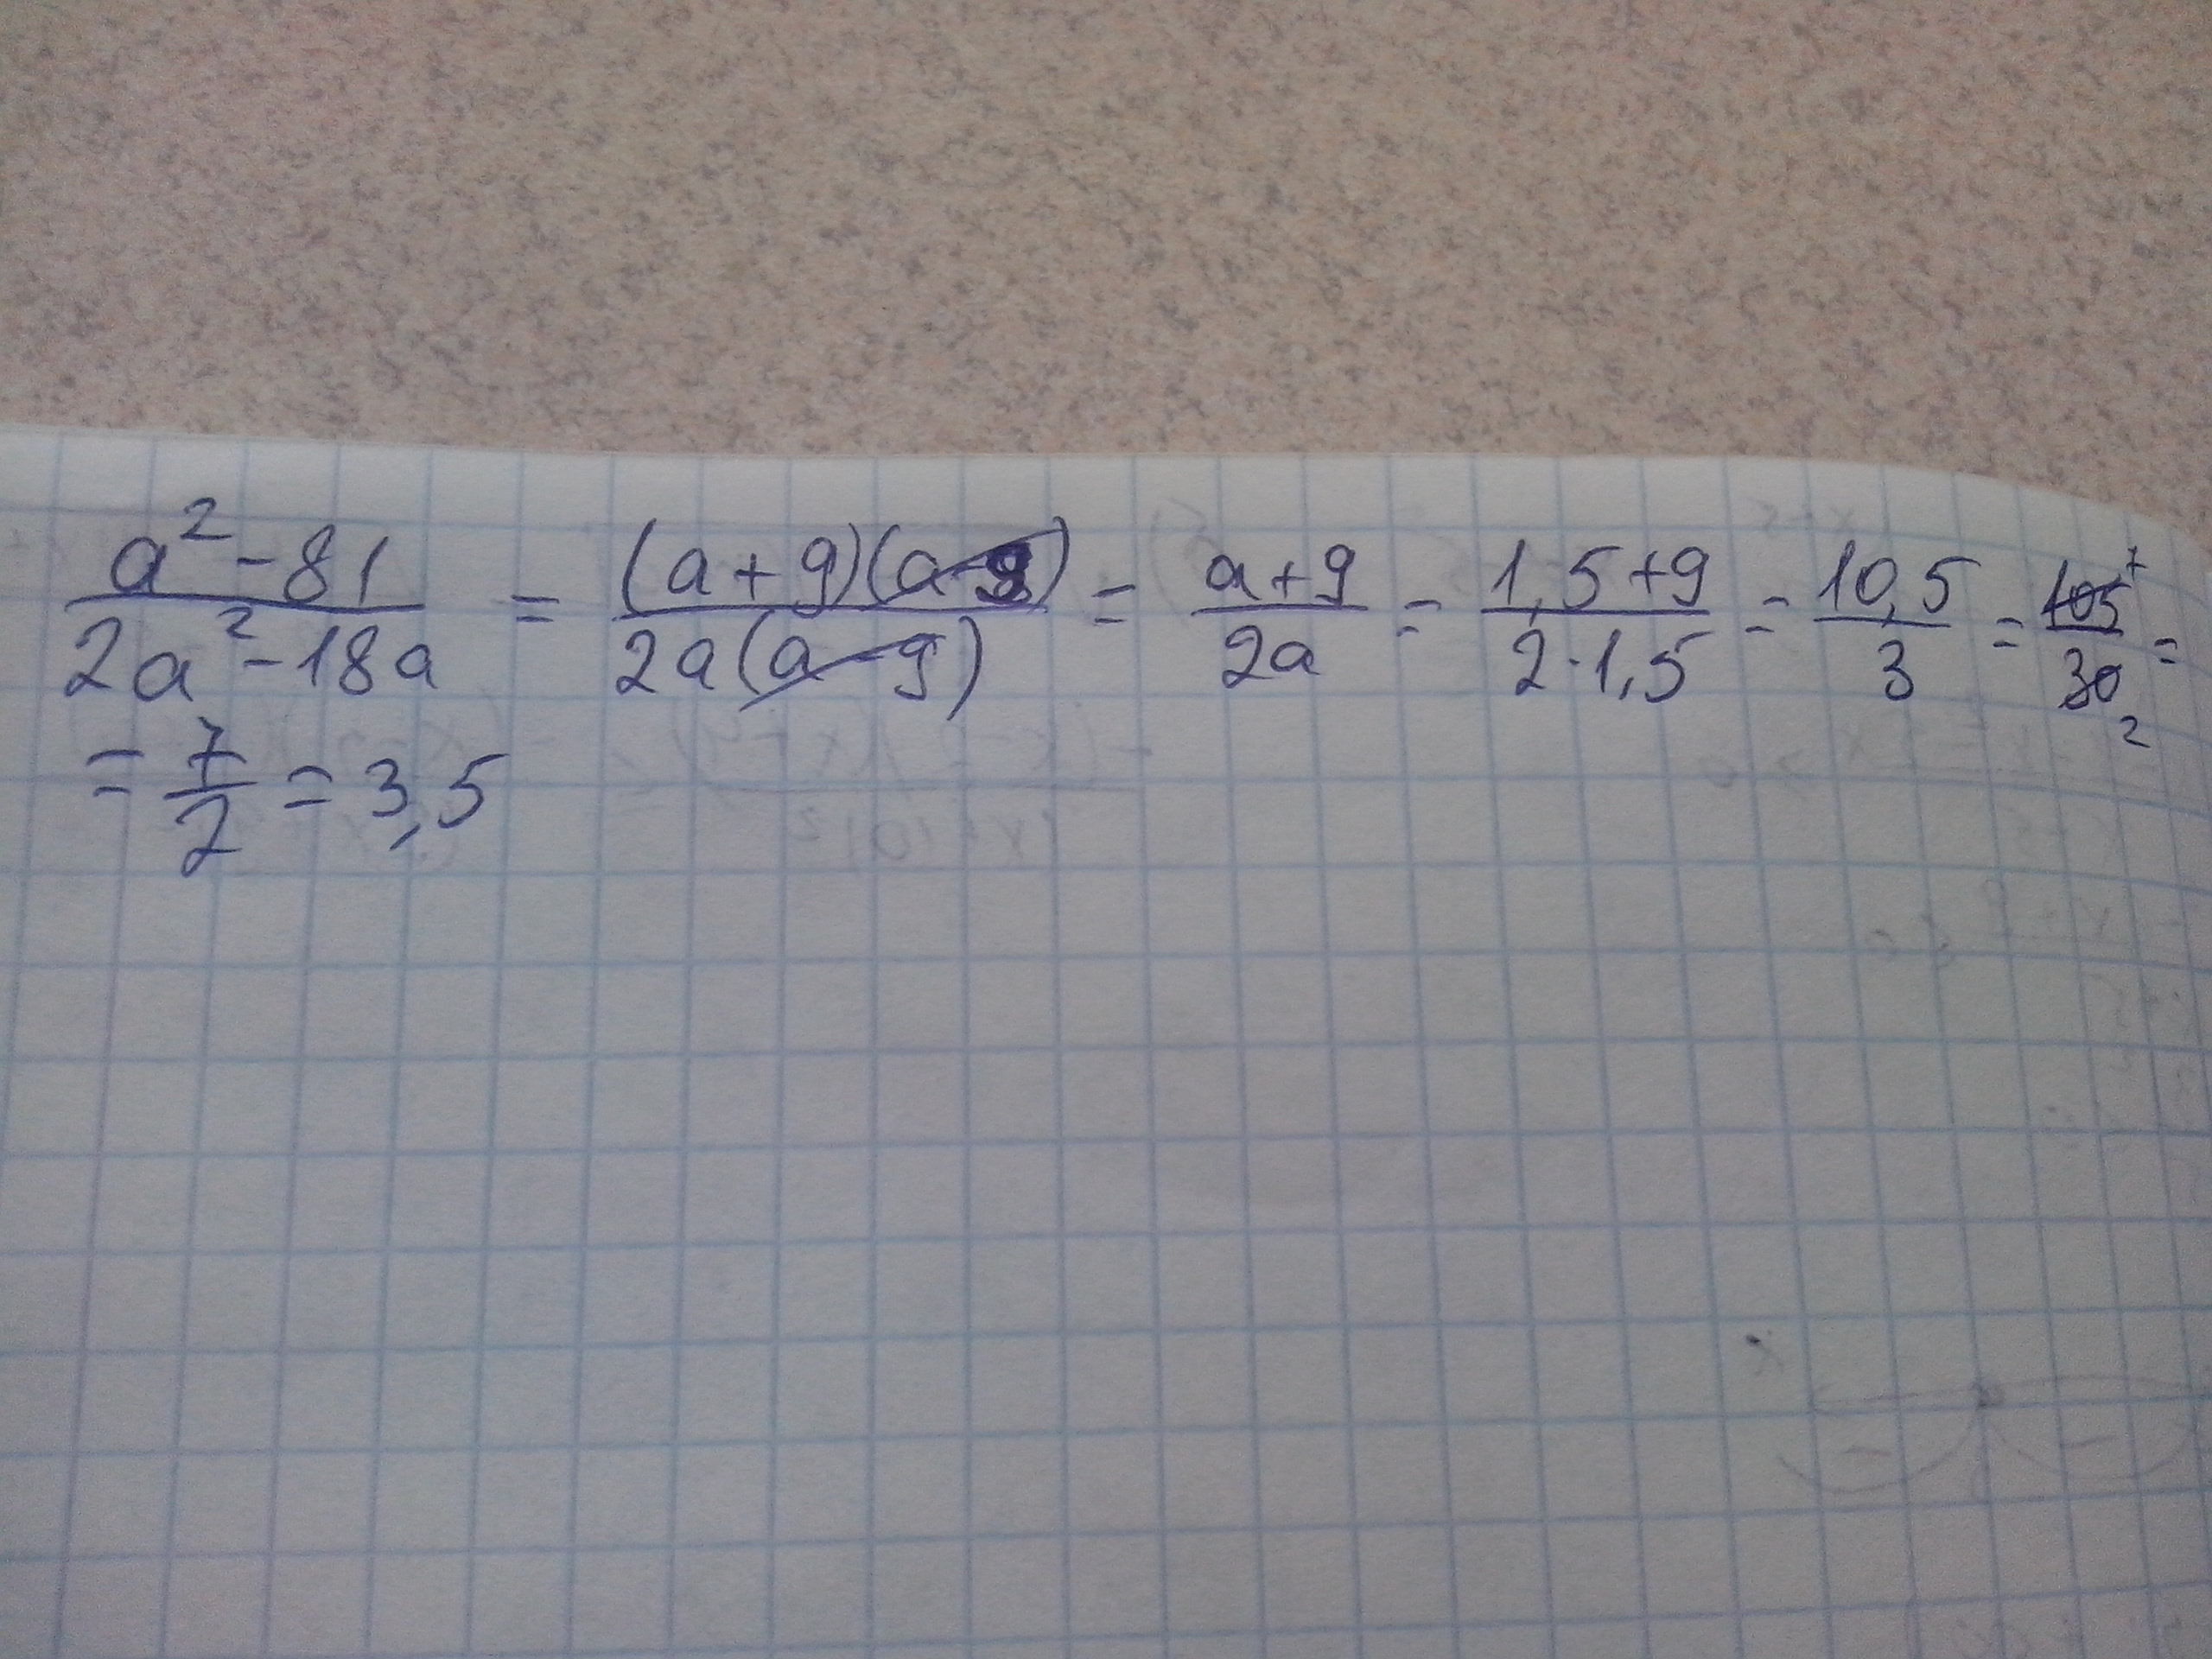 (a² - 81)/(2a² - 18a) = ((a + 9)(a - 9))/(2a(a - 9)) = (a + 9)/(2a) = (1,5 + 9)/(2 · 1,5) = 10,5/3 = 105 7/30 2 =
= 7/2 = 3,5